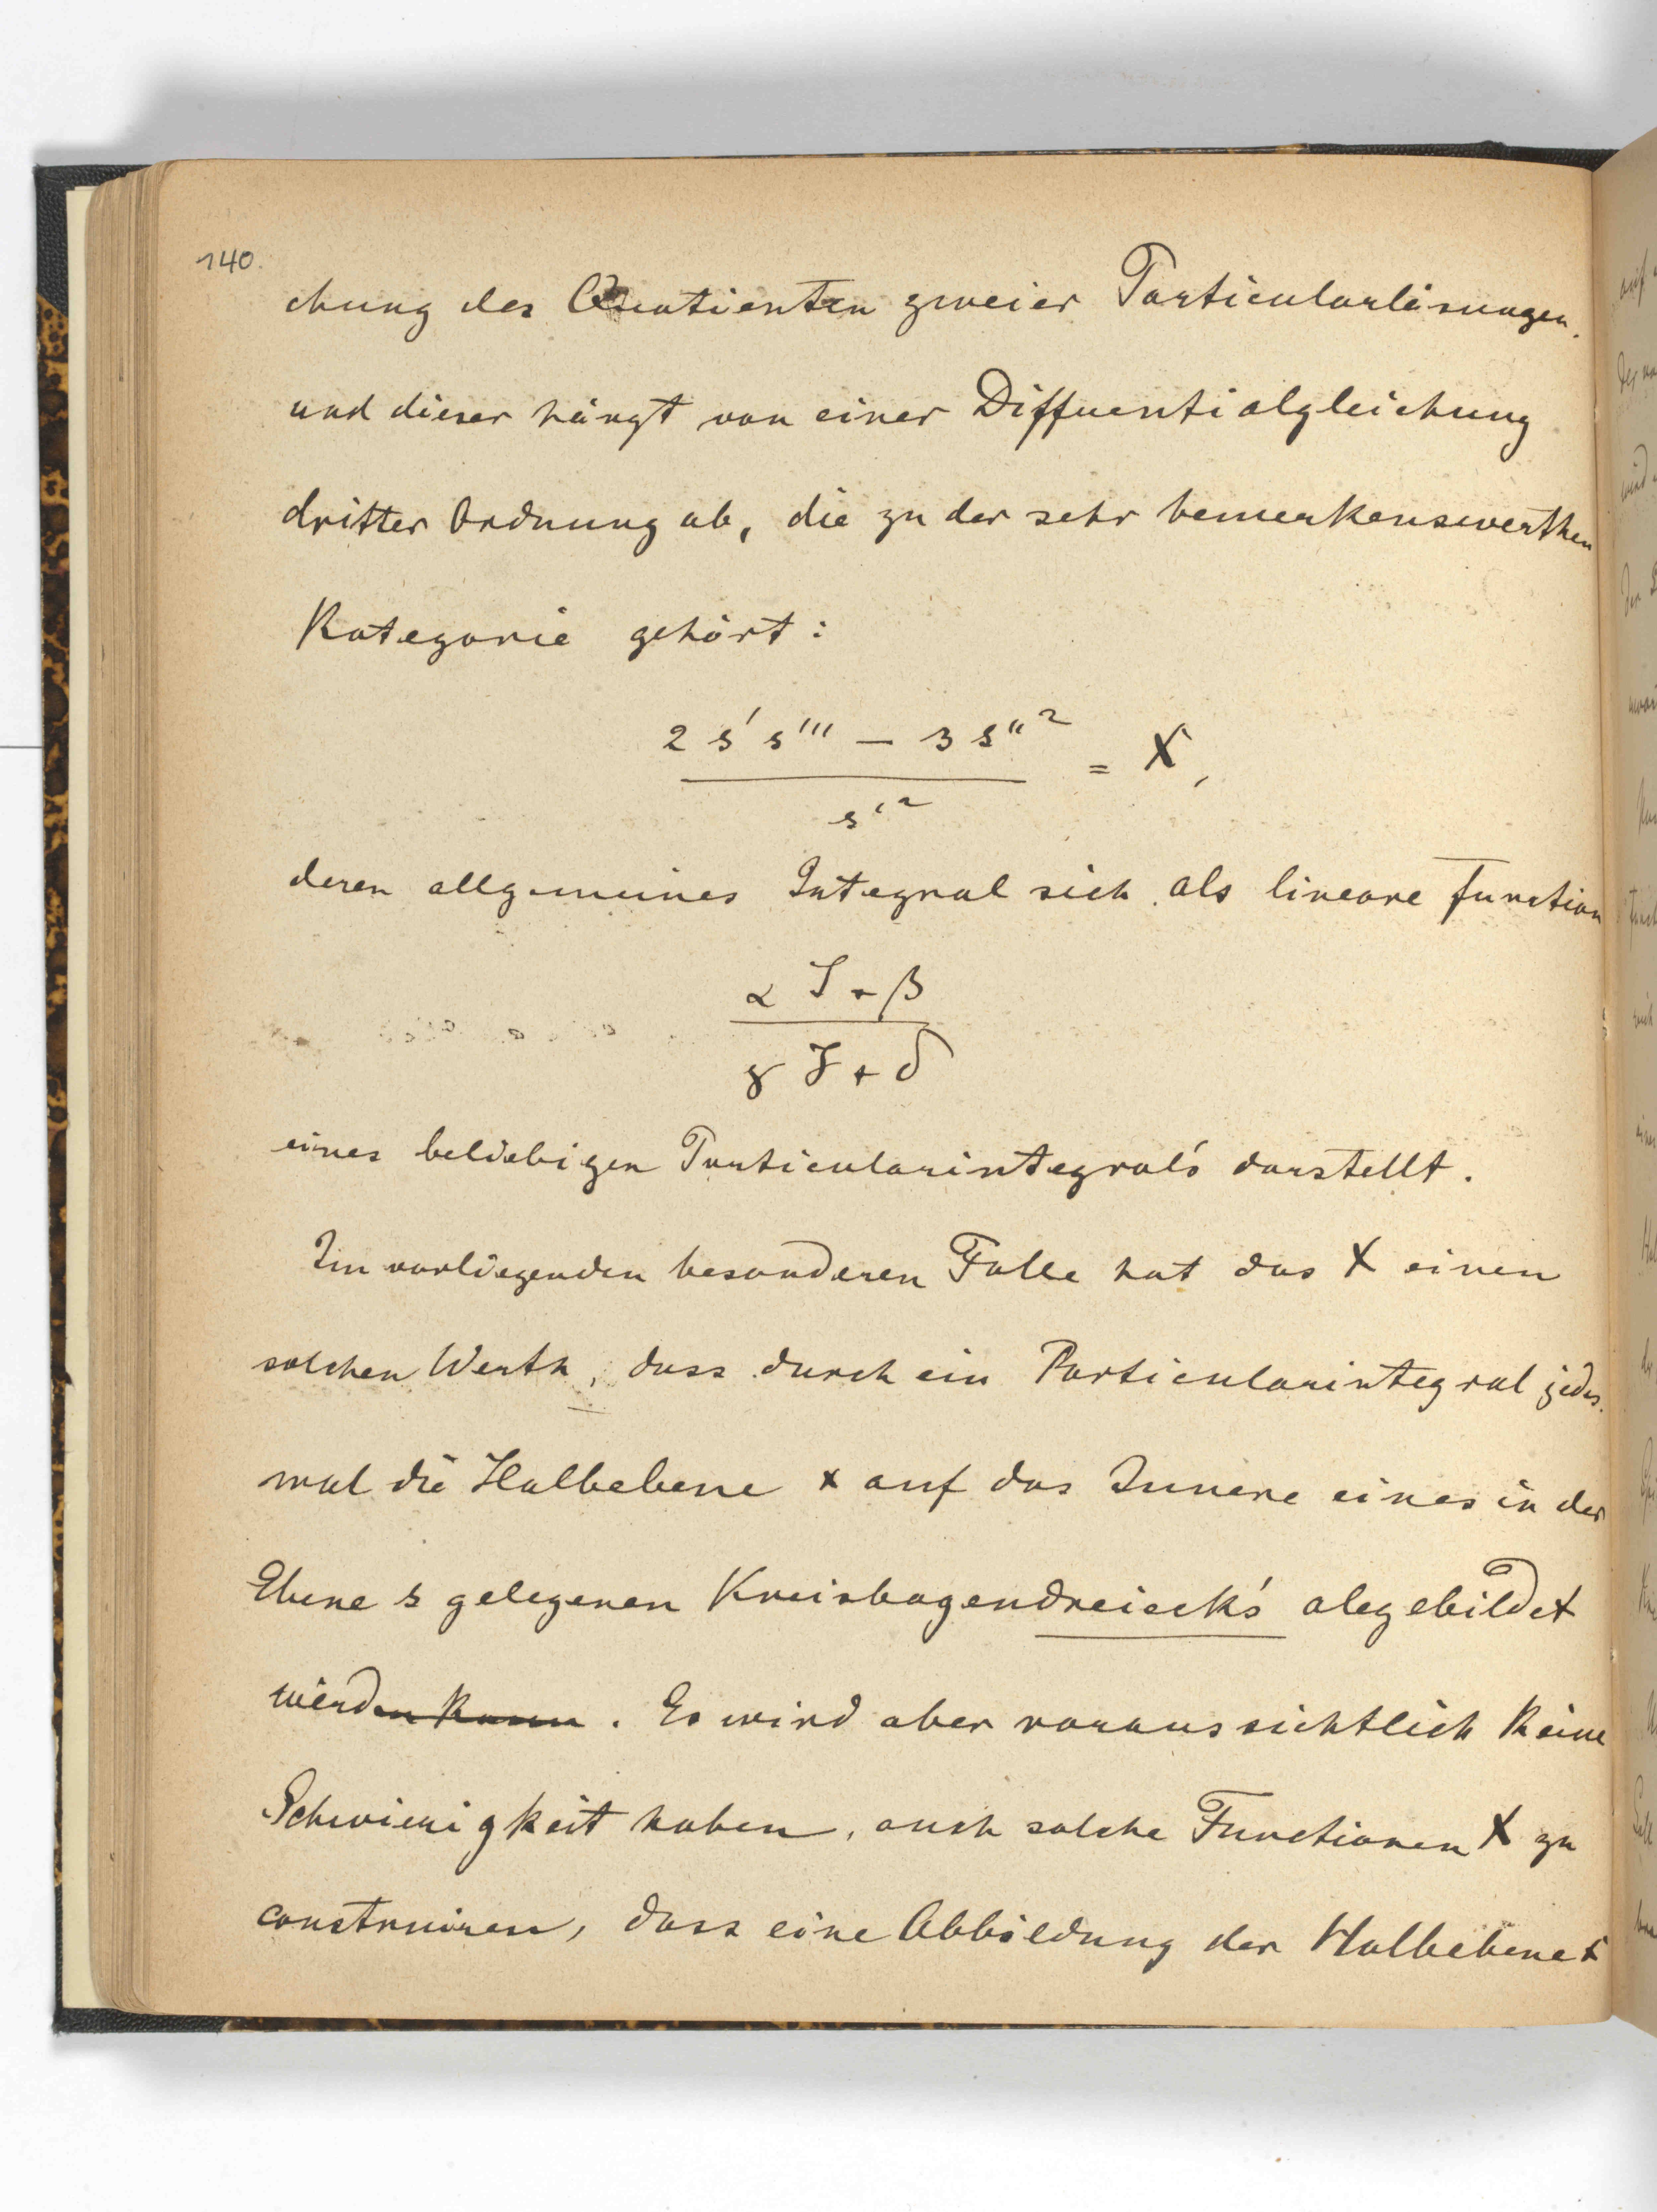 140.
chung des Quotienten zweier Particularlösungen.
und dieser hängt von einer Differentialgleichung
dritter Ordnung ab, die zu der sehr bemerkenswerthen
Kategorie gehört:
2 s' s''' − 3 s''²
= X,
s'²
deren allgemeines Integral sich als lineare Function
α S + β
γ S + δ
eines beliebigen Particularintegral's darstellt.
Im vorliegenden besonderen Falle hat das X einen
solchen Werth, dass durch ein Particularintegral jedes-
mal die Halbebene x auf das Innere eines in der
Ebene s gelegenen Kreisbogendreieck's abgebildet
werden kann. Es wird aber voraussichtlich keine
Schwierigkeit haben, auch solche Functionen X zu
construiren, dass eine Abbildung der Halbebene x